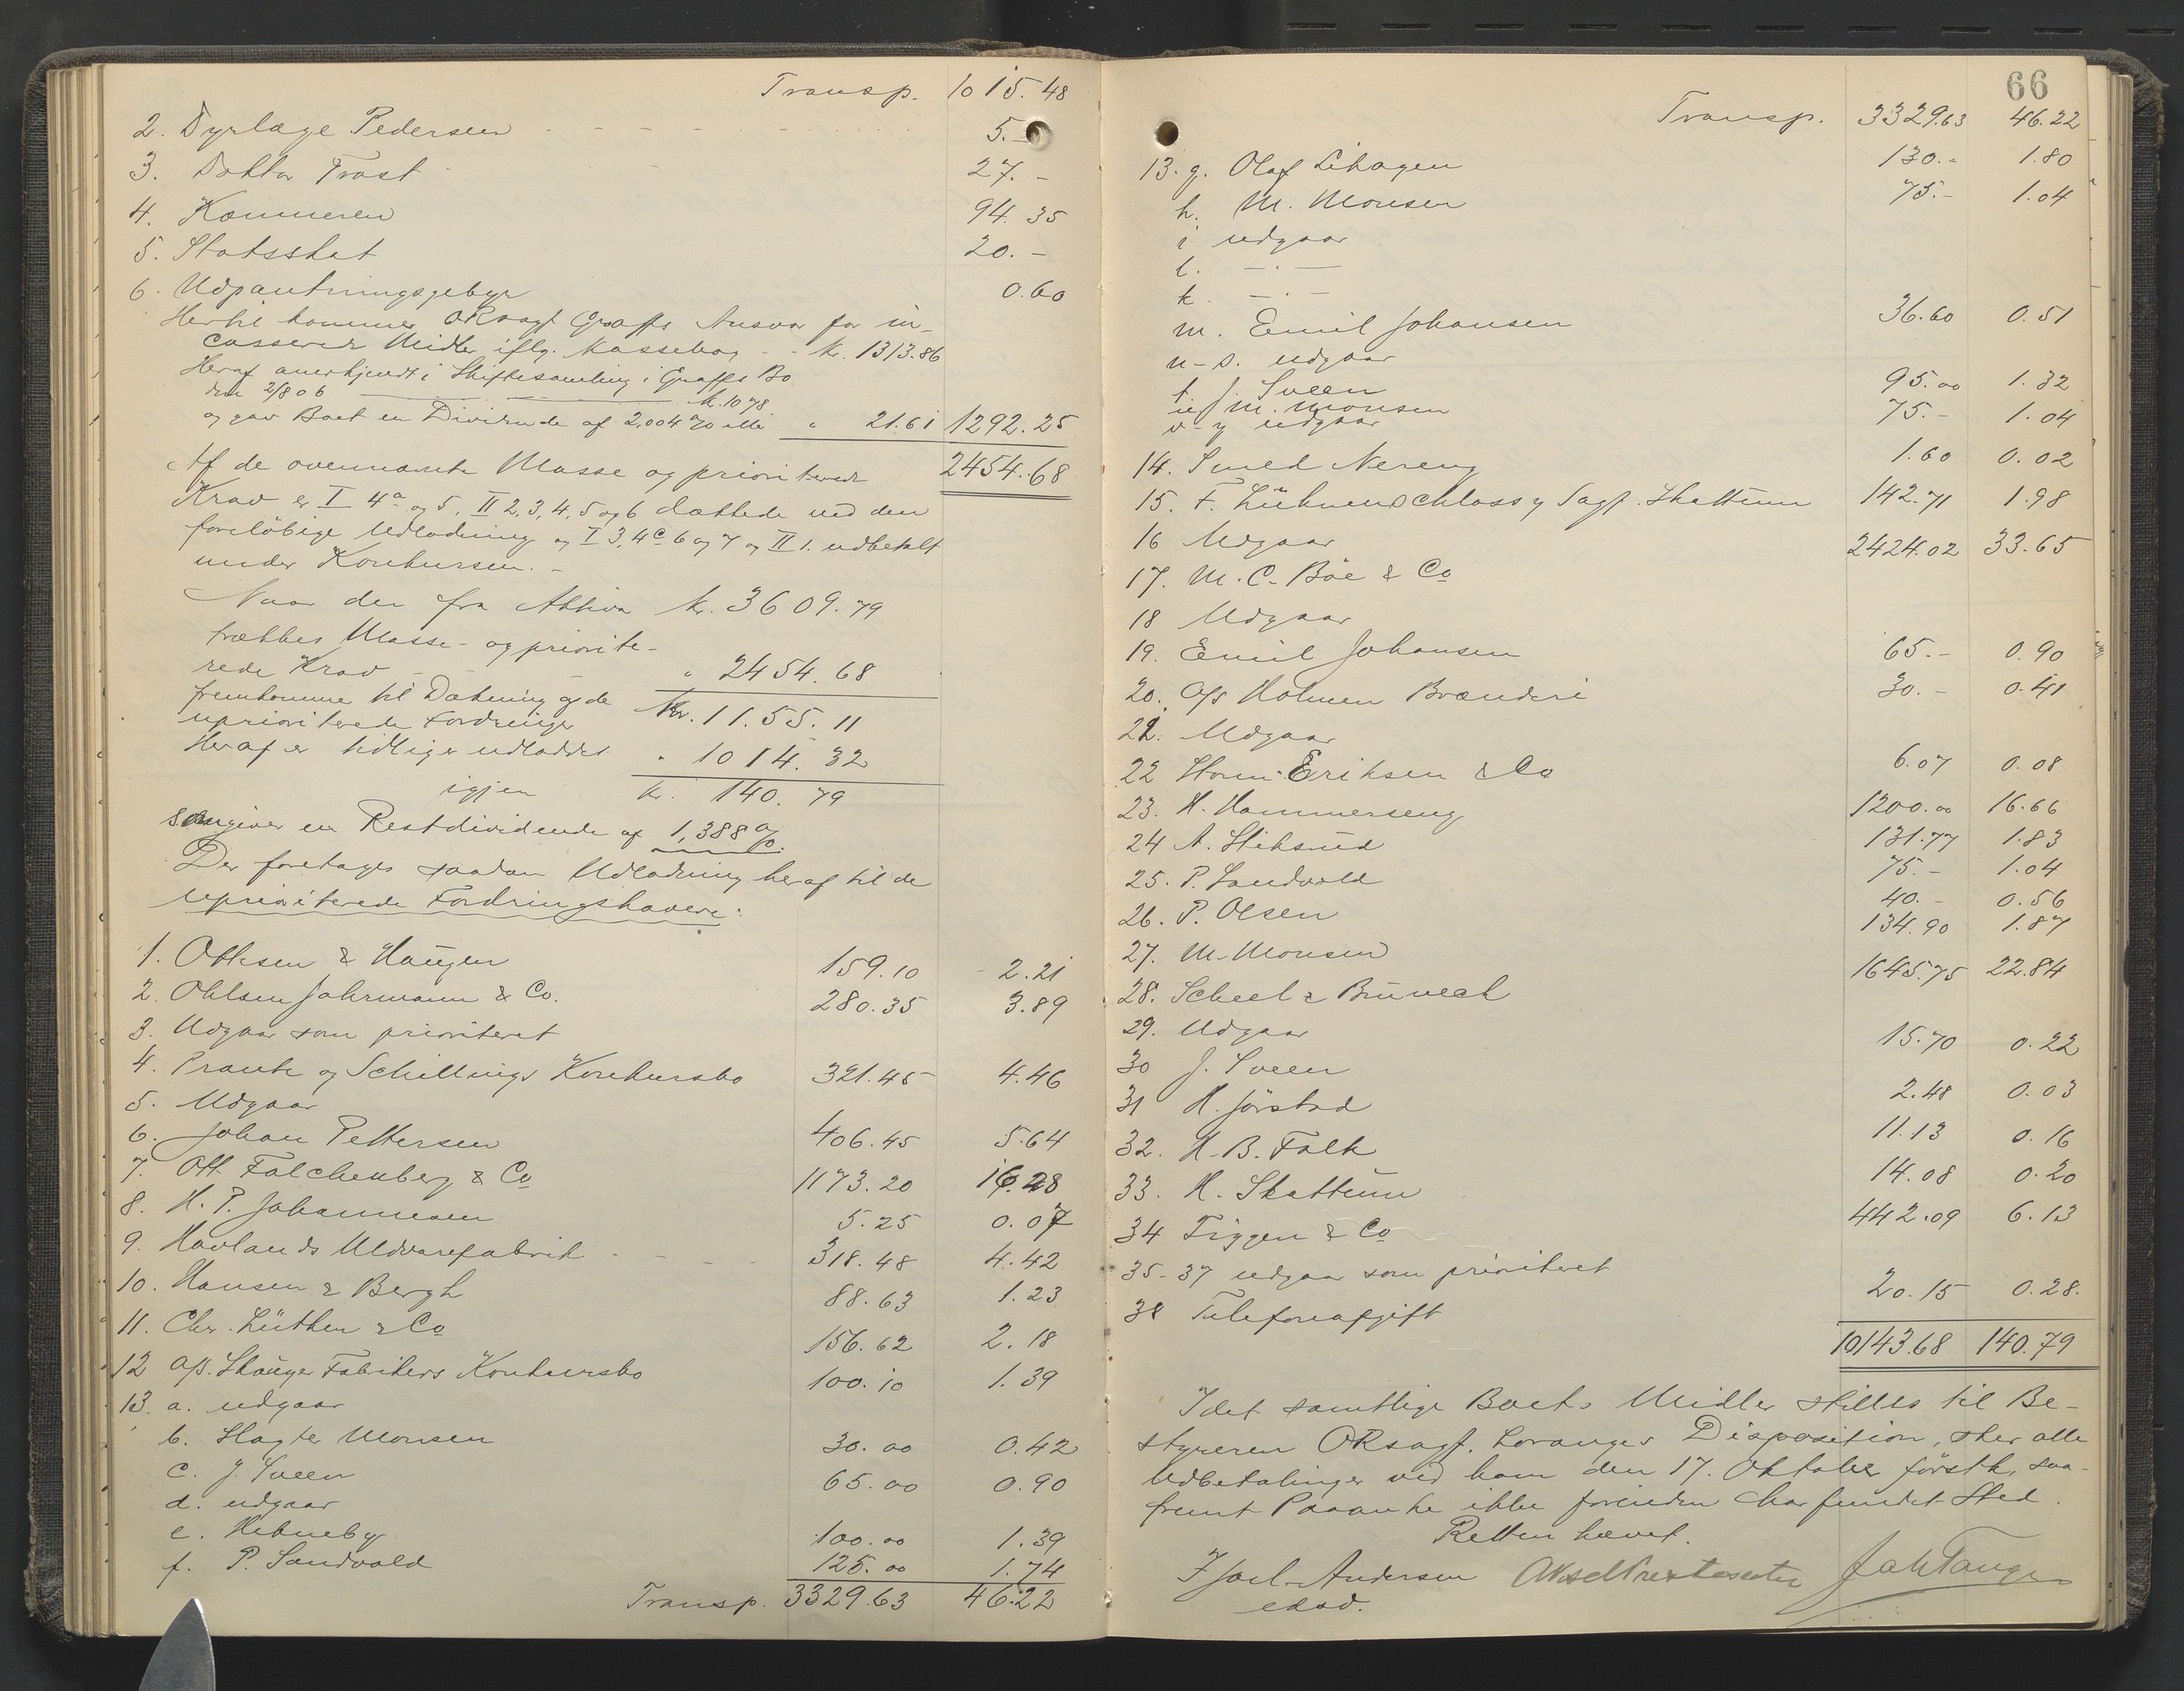 Transp. 1015.48
2. Dyrlæge Pedersen 5.-
3. Doktor Trost 27.-
4. Kæmneren 94.35
5. Statsskat 20.-
6. Udpantningsgebyr 0.60
Hertil kommer ORsagf. Graffs Ansvar for in-
casserede Midler iflg. Kassebog kr. 1313.86
Heraf anerkjendt i Skiftesamling i Graffs Bo
den 2/8 06 kr. 1078.
og gav Boet en Dividende af 2,004 % eller " 21.61 1292.25
Af de ovennævnte Masse og prioriterede 2454.68
Krav er I 4a og 5, II 2, 3, 4, 5 og 6 dækkede ved den
foreløbige Udlodning og I 3, 4c 6 og 7 og II 1. udbetalt
under Konkursen. -
Naar der fra Aktiva kr. 3609.79
trækkes Masse- og priorite-
rede Krav " 2454.68
fremkommer til Dækning af de
uprioriterede Fordringer Kr. 1155.11
Heraf er tidligere udloddet " 1014.32
igjen kr. 140.79
som giver en Restdividende af 1,388 %.
Der foretages saadan Udlodning heraf til de
uprioriterede Fordringshavere:
1. Ottesen & Haugen 159.10 2.21
2. Ohlsen Jahrmann & Co. 280.35 3.89
3. Udgaar som prioriteret
4. Prante og Schillings Konkursbo 321.45 4.46
5. Udgaar
6. Johan Pettersen 406.45 5.64
7. Ott. Falchenberg & Co 1173.20 16.28
8. H. P. Johannesen 5.25 0.07
9. Havlands Uldvarefabrik 318.48 4.42
10. Hansen & Bergh 88.63 1.23
11. Chr. Lüthen & Co 156.62 2.18
12 A/S. Skauger Fabrikers Konkursbo 100.10 1.39
13. a. udgaar
b. Slagter Monsen 30.00 0.42
c. J. Sveen 65.00 0.90
d. udgaar
e. Hekneby 100.00 1.39
f. P. Sandvold 125.00 1.74
Transp. 3329.63 46.22
66
Transp. 3329.63 46.22
13. g. Olaf Lihagen 130.- 1.80
h. M. Monsen 75.- 1.04
i udgaar
l. -·-
k. -·-
m. Emil Johansen 36.60 0.51
n-s. udgaar
t. J. Sveen 95.00 1.32
u. M. Monsen 75.- 1.04
v-y udgaar
14. Smed Nereng 1.60 0.02
15. F. Lühnenschloss y Sagf. Skattum 142.71 1.98
16 Udgaar
17. M. C. Böe & Co 2424.02 33.65
18 Udgaar
19. Emil Johansen 65.- 0.90
20. A/S Holmen Brænderi 30.- 0.41
21. Udgaar
22 Herm. Eriksen & Co 6.07 0.08
23. H. Hammerseng 1200.00 16.66
24 A. Stiksrud 131.77 1.83
25. P. Sandvold 75.- 1.04
26. P. Olsen 40.- 0.56
27. M. Monsen 134.90 1.87
28. Scheel & Brunech 1645.75 22.84
29. Udgaar
30 J. Sveen 15.70 0.22
31 H. Jörstad 2.48 0.03
32. H. B. Falk 11.13 0.16
33. H. Skattum 14.08 0.20
34 Tiggen & Co 442.09 6.13
35-37 udgaar som prioriteret
38 Telefonafgift 20.15 0.28.
10143.68 140.79
Idet samtlige Boets Midler stilles til Be-
styreren ORsagf. Loranges Disposition, sker alle
Udbetalinger ved ham den 17. Oktober förstk. saa-
fremt Paaanke ikke forinden har fundet Sted.
Retten hævet.
Joel Andersen
edsv.